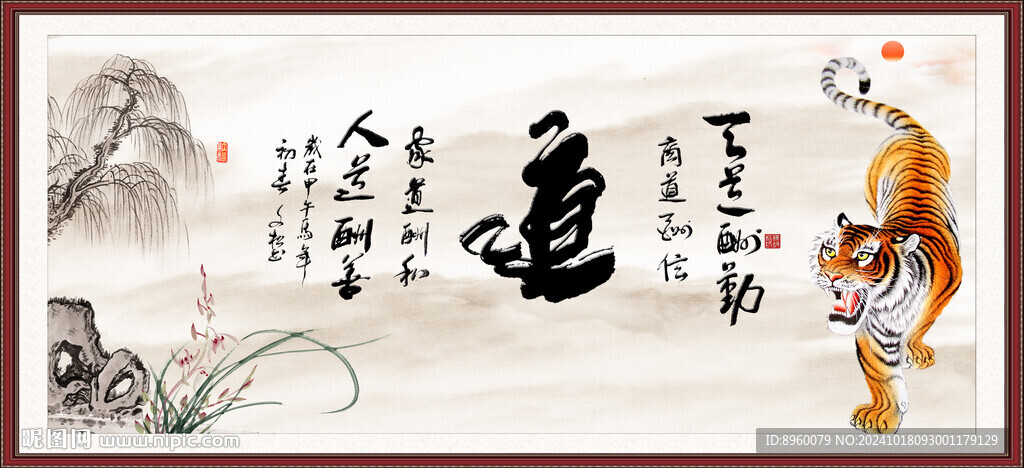 天道酬勤
商道酬信
道
家道酬和
人道酬善
岁在甲午马年
初春
昵图网 www.nipic.com
ID:8960079 NO:20241018093001179129